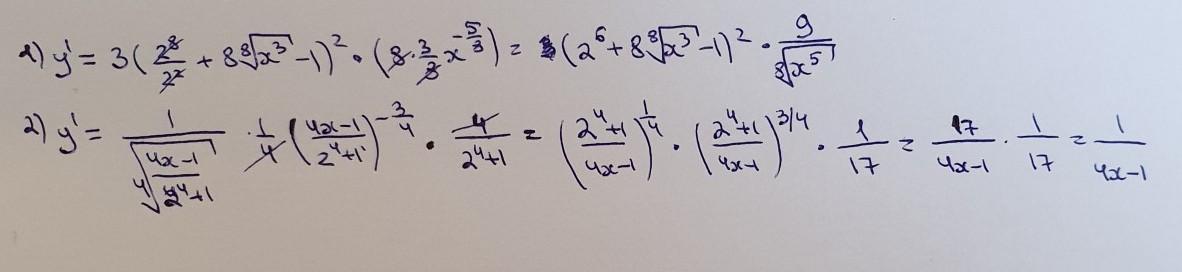 1) y' = 3(2⁸/2² + 8⁸√x³ - 1)² · (8 · 3/8 x^(-5/8)) = (2⁶ + 8⁸√x³ - 1)² · 9/⁸√x⁵
2) y' = 1/⁴√((4x-1)/(2⁴+1)) · 1/4 ((4x-1)/(2⁴+1))^(-3/4) · 4/(2⁴+1) = ((2⁴+1)/(4x-1))^(1/4) · ((2⁴+1)/(4x-1))^(3/4) · 1/17 = 17/(4x-1) · 1/17 = 1/(4x-1)